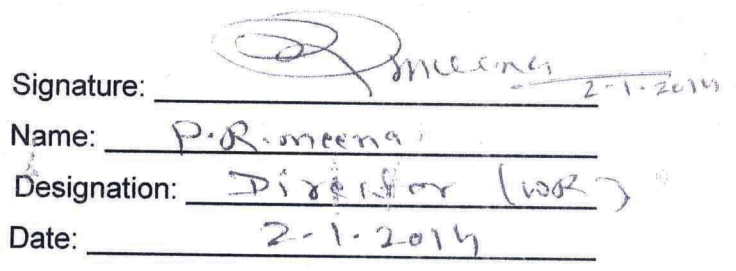 Signature: Rmeena 2-1-2014
Name: P.R.meena
Designation: Director (WR)
Date: 2-1-2014